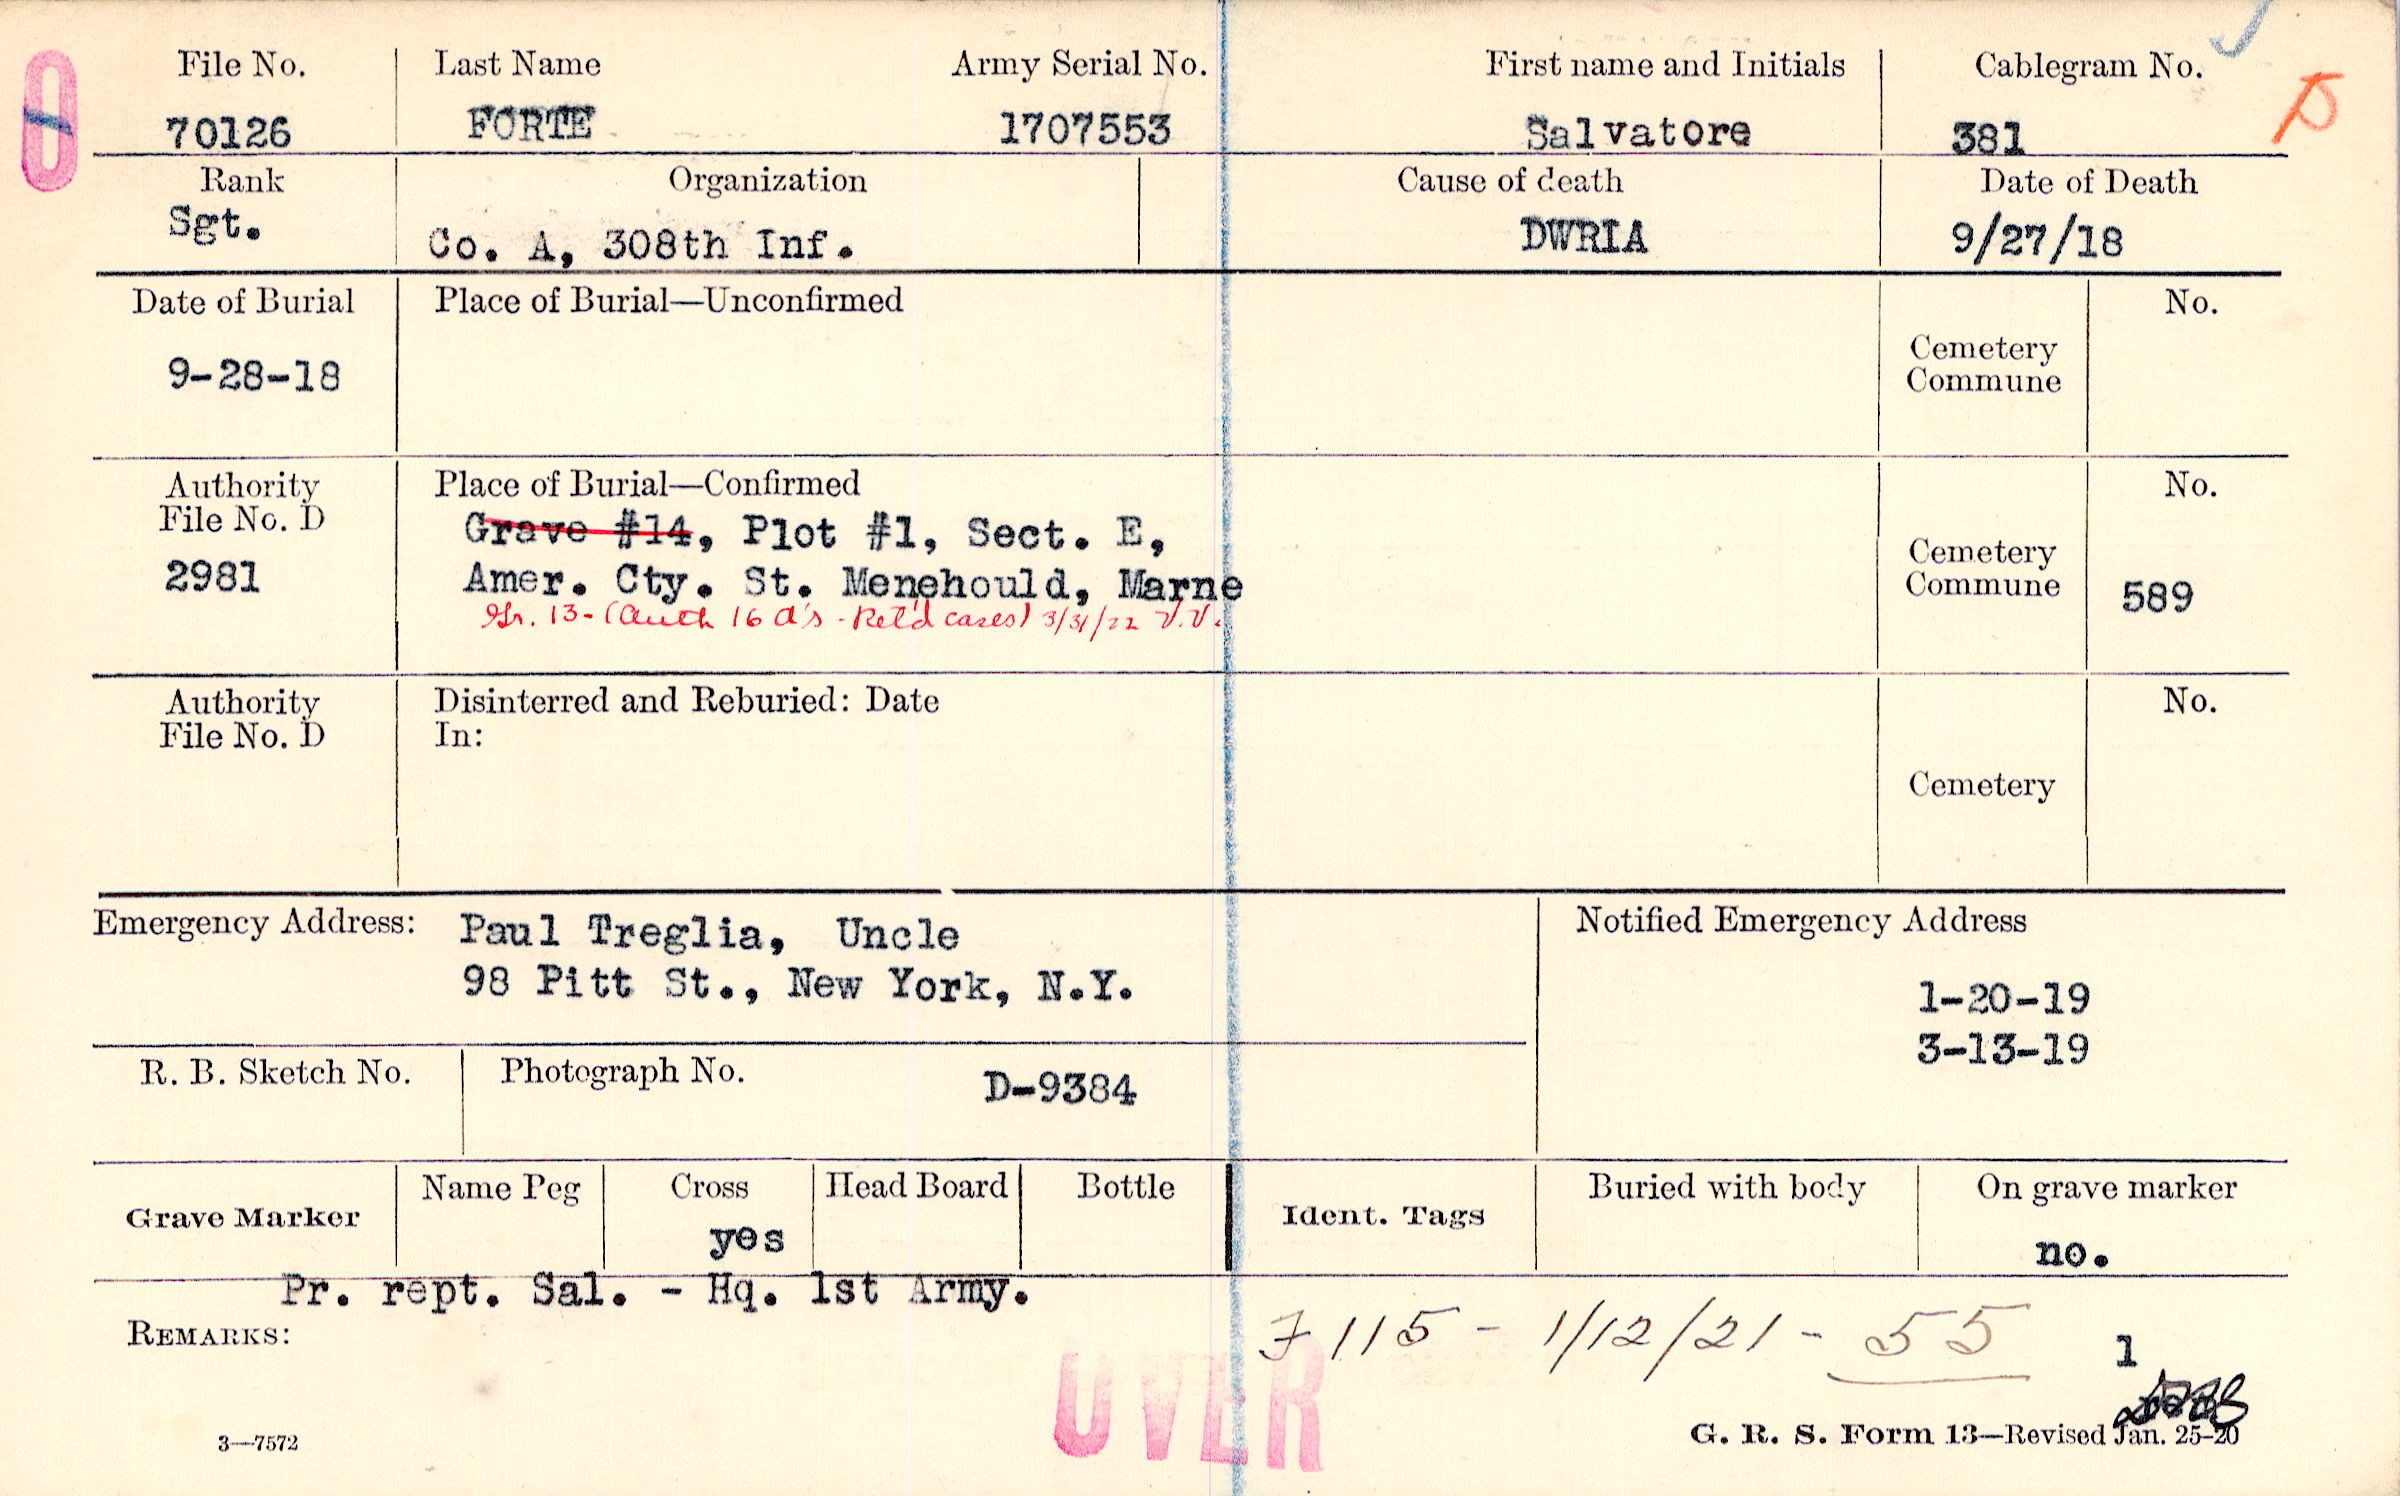 File No. Last Name Army Serial No. First name and Initials Cablegram No.
70126 FORTE 1707553 Salvatore 381
Rank Organization Cause of death Date of Death
Sgt. Co. A, 308th Inf. DWRIA 9/27/18
Date of Burial Place of Burial—Unconfirmed No.
9-28-18
Cemetery
Commune
Authority Place of Burial—Confirmed No.
File No. D
Grave #14, Plot #1, Sect. E,
2981 Amer. Cty. St. Menehould, Marne
Cemetery
Commune 589
Gr. 13 - (Auth 16 a's - Ret'd cases) 3/31/22 V.V.
Authority Disinterred and Reburied: Date No.
File No. D In:
Cemetery
Emergency Address: Paul Treglia, Uncle Notified Emergency Address
98 Pitt St., New York, N.Y. 1-20-19
3-13-19
R. B. Sketch No. Photograph No. D-9384
Grave Marker Name Peg Cross Head Board Bottle Ident. Tags Buried with body On grave marker
yes no.
Pr. rept. Sal. - Hq. 1st Army.
REMARKS: 7115 - 1/12/21 - 55 1
OVER
3—7572 G. R. S. Form 13—Revised Jan. 25-20